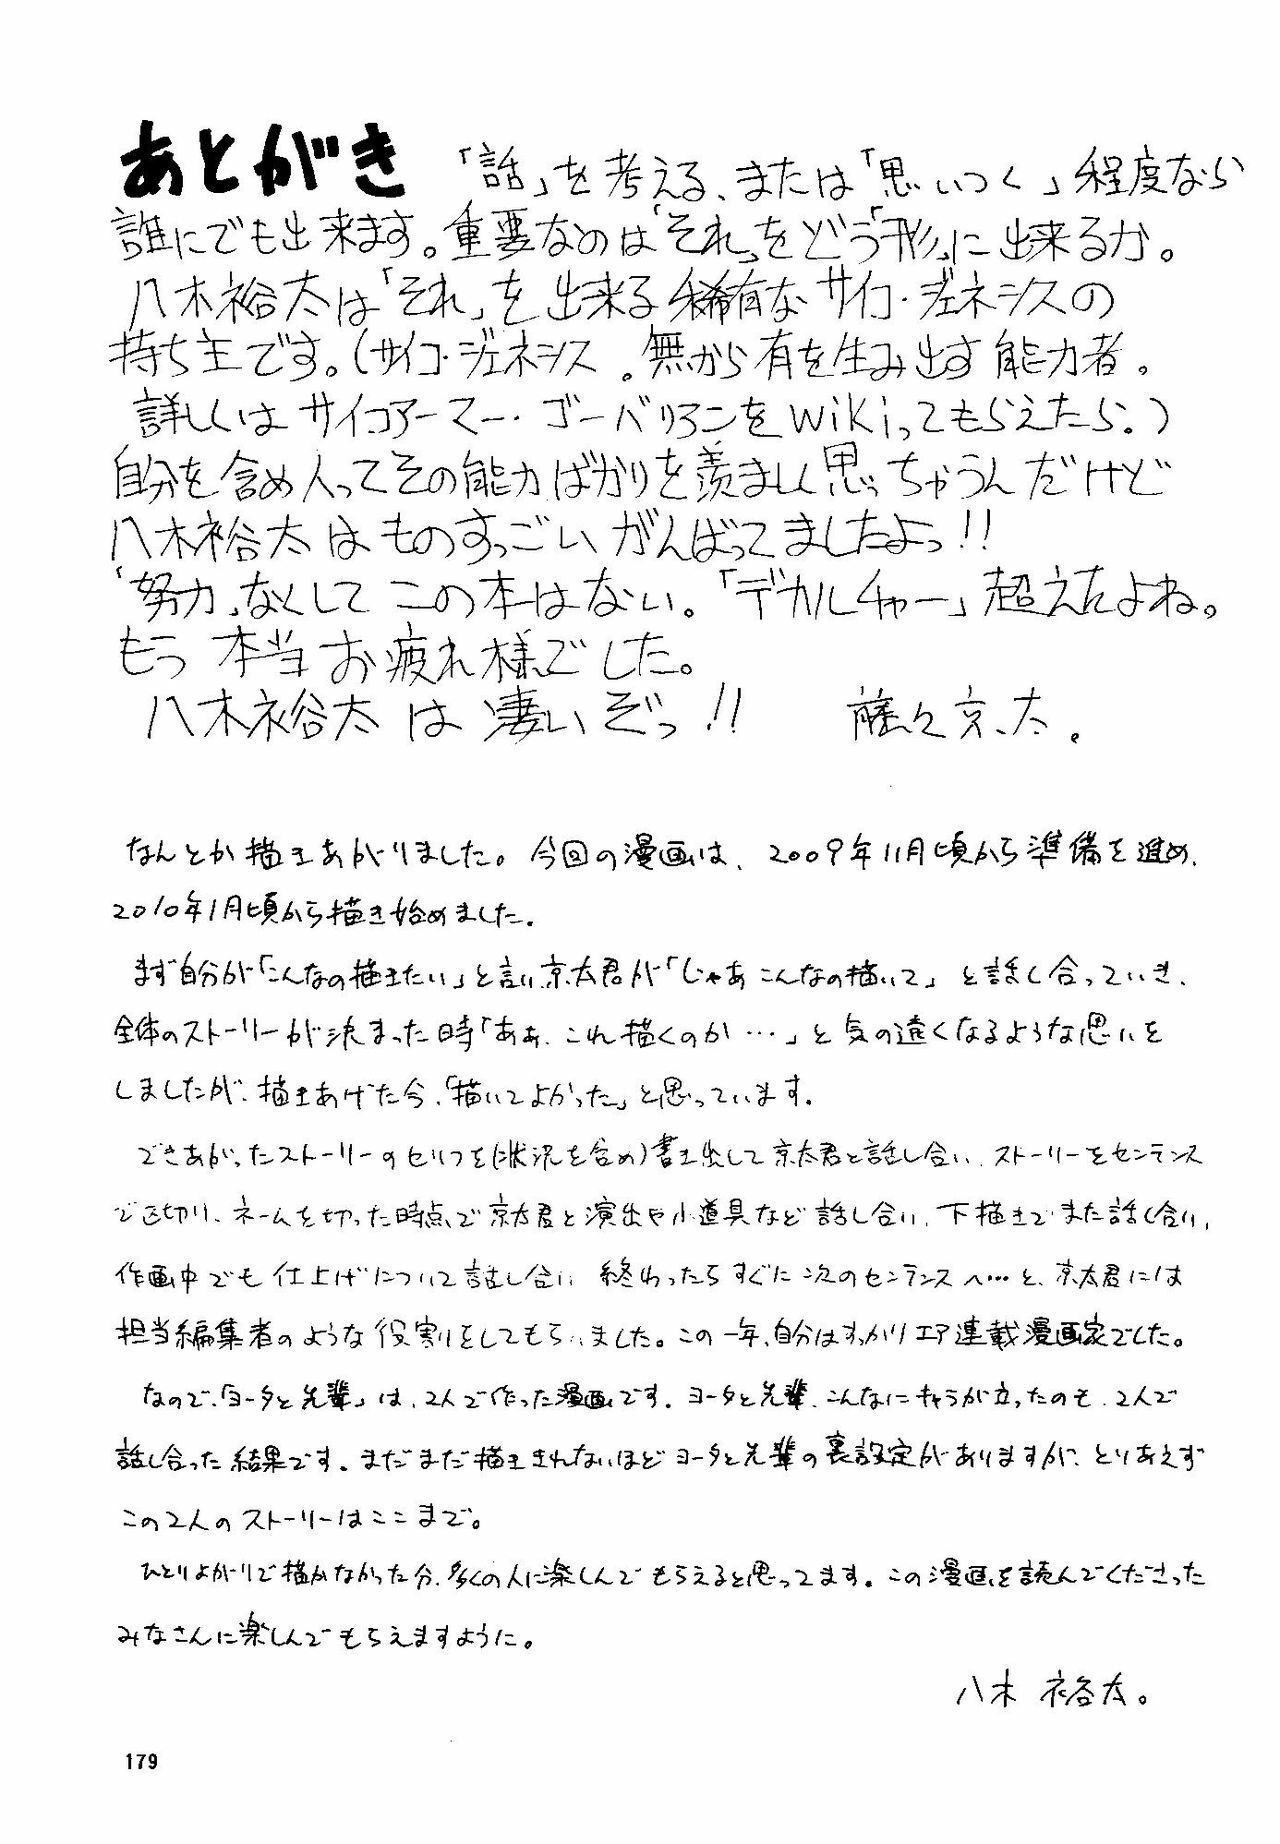 あとがき 「話」を考える、または「思いつく」程度なら
誰にでも出来ます。重要なのは「それ」をどう「形」に出来るか。
八木裕太は「それ」を出来る稀有なサイコ・ジェネシスの
持ち主です。(サイコ・ジェネシス。無から有を生み出す能力者。
詳しくはサイコアーマー・ゴーバリアンをwikiってもらえたら。)
自分を含め人ってその能力ばかりを羨ましく思っちゃうんだけど
八木裕太はものすっごいがんばってましたよっ!!
「努力」なくしてこの本はない。「デカルチャー」超えたよね。
もう本当お疲れ様でした。
八木裕太は凄いぞっ!! 藤久京太。
なんとか描きあがりました。今回の漫画は、2009年11月頃から準備を進め、
2010年1月頃から描き始めました。
まず自分が「こんなの描きたい」と言い京太君が「じゃあこんなの描いて」と話し合っていき、
全体のストーリーが決まった時「ああ、これ描くのか…」と気の遠くなるような思いを
しましたが、描きあげた今、「描いてよかった」と思っています。
できあがったストーリーのセリフを(状況を含め)書き出して京太君と話し合い、ストーリーをセンテンス
で区切り、ネームを切った時点で京太君と演出や小道具など話し合い、下描きでまた話し合い、
作画中でも仕上げについて話し合い 終わったらすぐに次のセンテンスへ…と、京太君には
担当編集者のような役割りをしてもらいました。この一年、自分はすっかりエア連載漫画家でした。
なので、「ヨータと先輩」は、2人で作った漫画です。ヨータと先輩、こんなにキャラが立ったのも、2人で
話し合った結果です。まだまだ描ききれないほどヨータと先輩の裏設定がありますが、とりあえず
この2人のストーリーはここまで。
ひとりよがりで描かなかった分、多くの人に楽しんでもらえると思ってます。この漫画を読んでくださった
みなさんに楽しんでもらえますように。
八木 裕太。
179